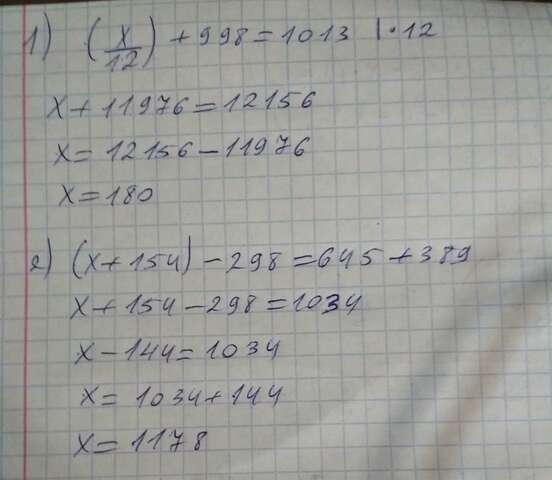 1) (x/12) + 998 = 1013 | · 12
x + 11976 = 12156
x = 12156 – 11976
x = 180
2) (x + 154) – 298 = 645 + 389
x + 154 – 298 = 1034
x – 144 = 1034
x = 1034 + 144
x = 1178